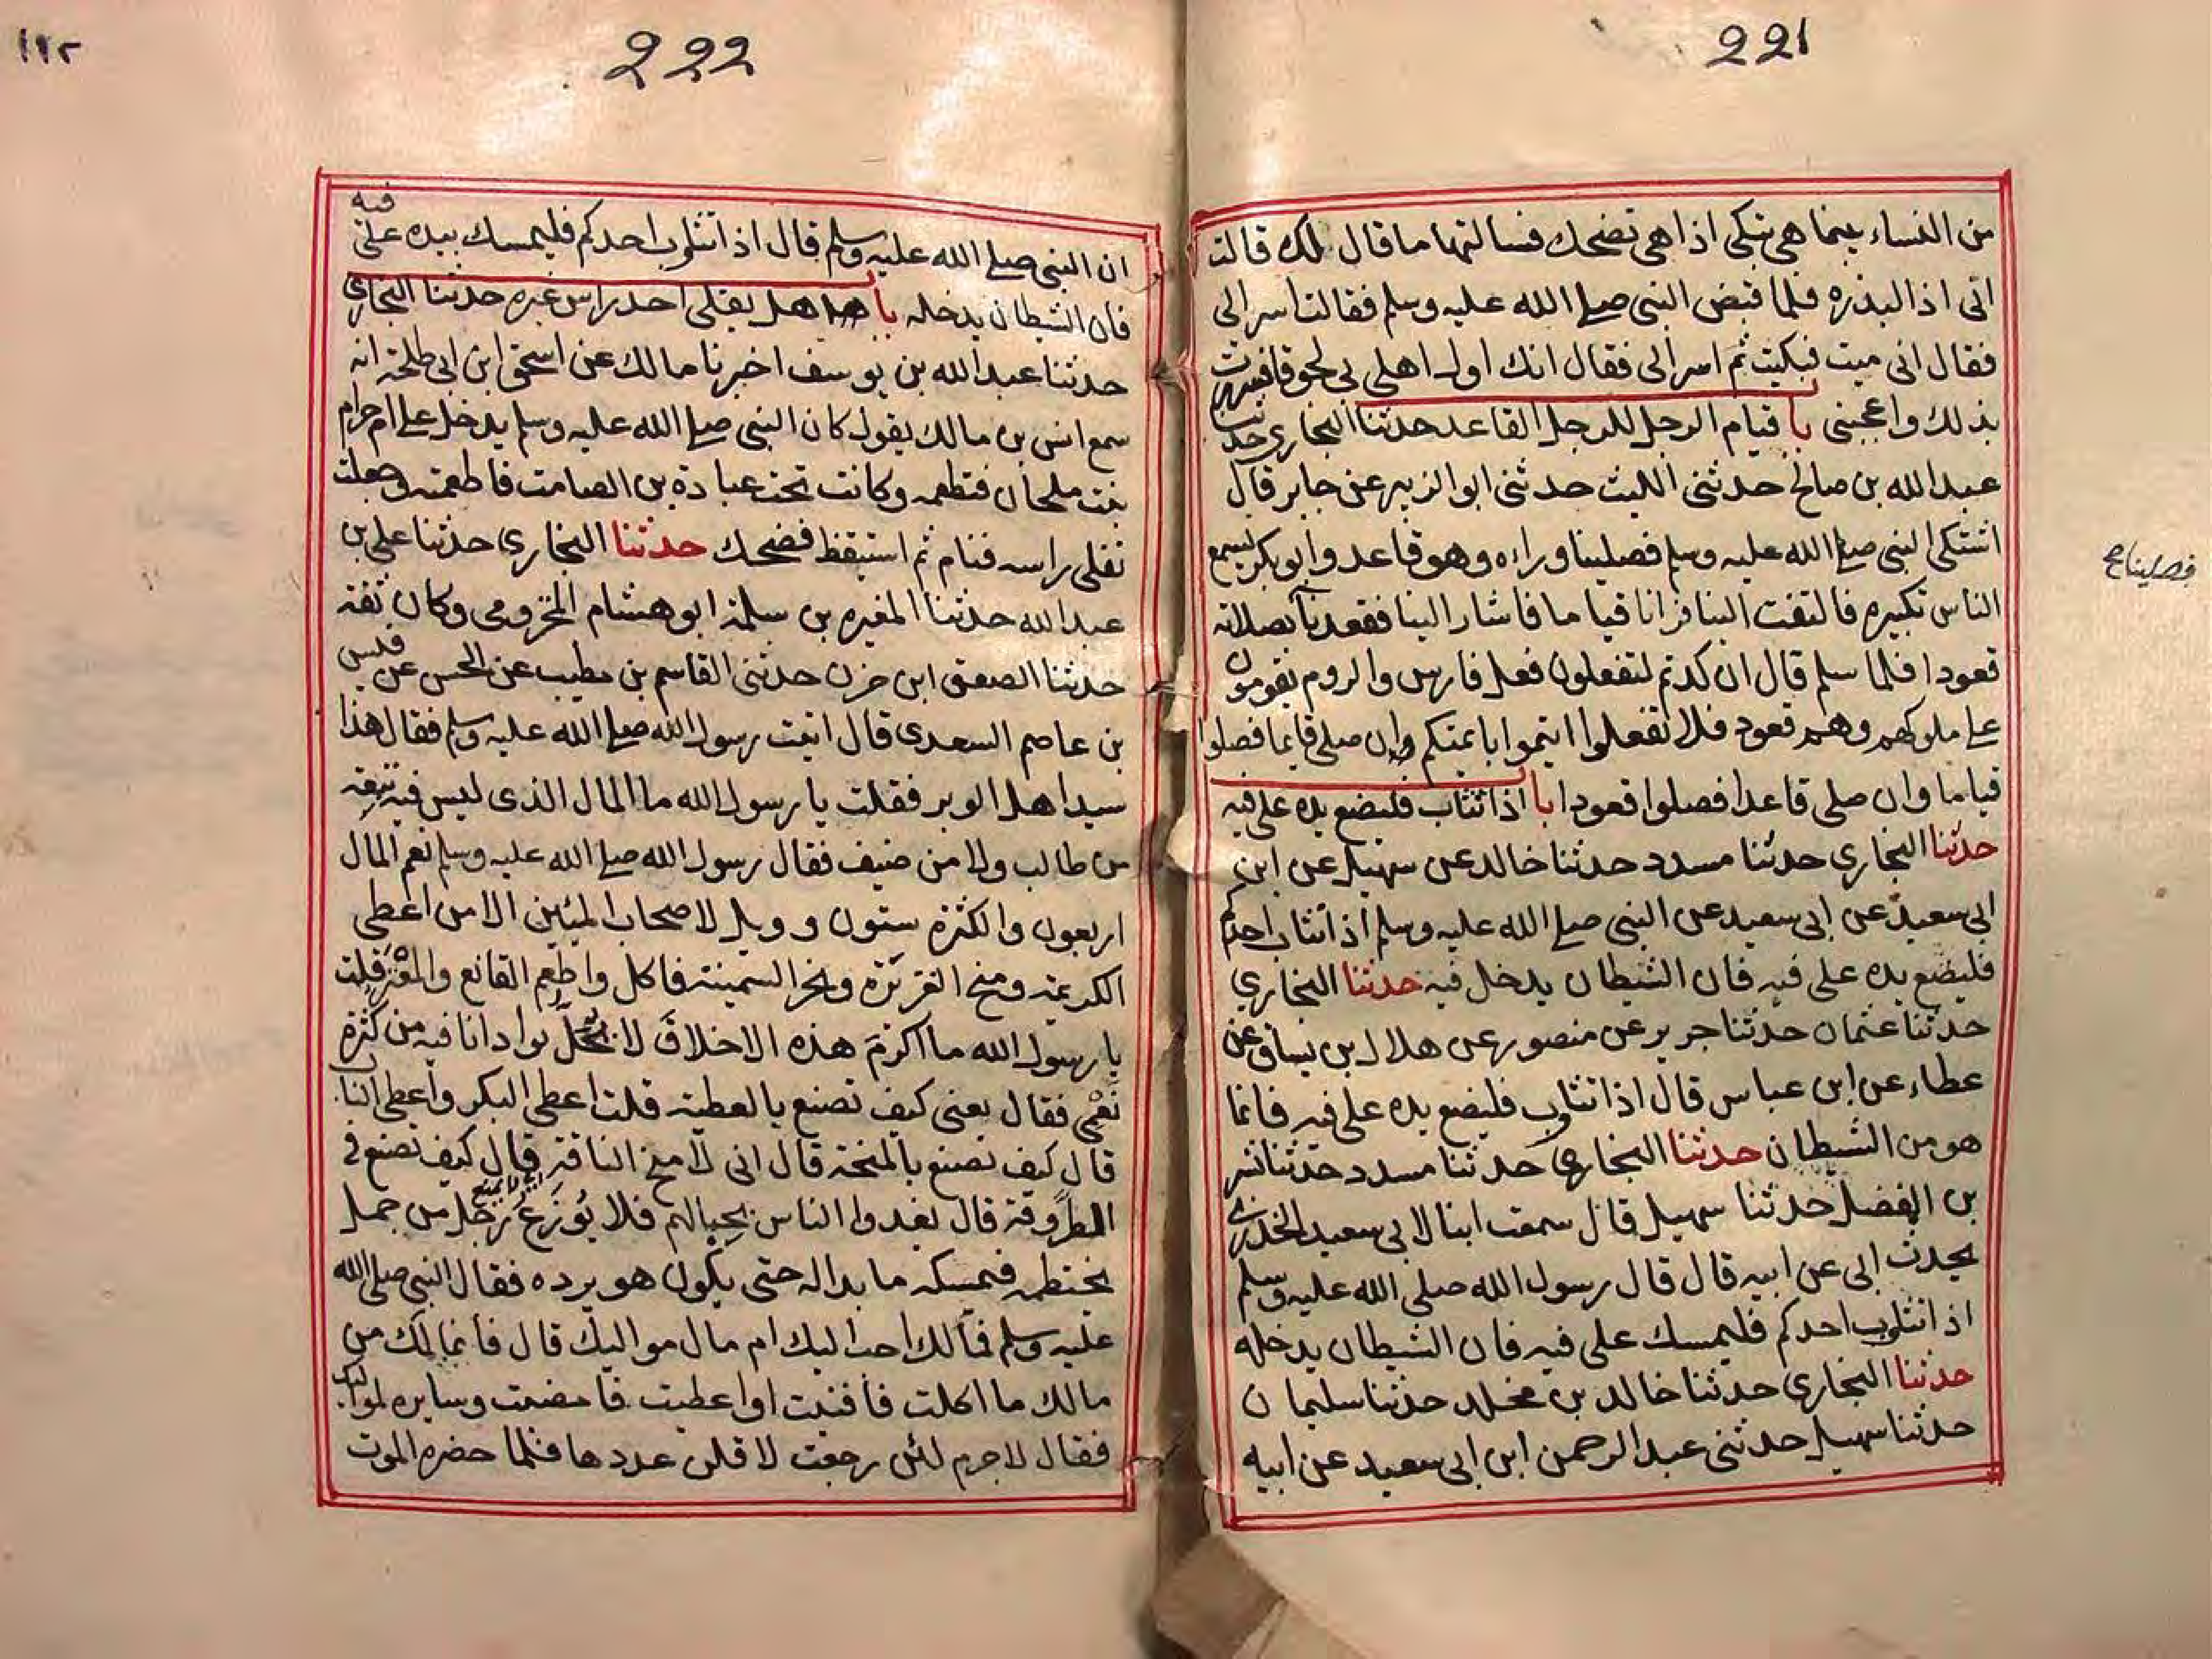 221
من النساء بينما هي تبكي اذا هي تضحك فسالتها ما قال لك قالت
اني اذا لبذره فلما قبض النبي صلى الله عليه وسلم فقالت اسر الى
فقال اني ميت فبكيت ثم اسر الى فقال انك اول اهلي بي لحوقا فسررت
بذلك واعجبني با قيام الرجل للرجل القاعد حدثنا البخاري حدثنا
عبد الله بن صالح حدثني الليث حدثني ابو الزبير عن جابر قال
اشتكى النبي صلى الله عليه وسلم فصلينا وراه وهو قاعد وابو بكر يسمع
فصليناع
الناس تكبيره فالتفت الينا فرانا قياما فاشار الينا فقعدنا بصلاته
قعودا فلما سلم قال ان كدتم لتفعلون فعل فارس والروم يقومون
على ملوكهم وهم قعود فلا تفعلوا ايتموا بايمتكم وان صلى قايما فصلوا
قياما وان صلى قاعدا فصلوا قعودا با اذا تثاب فليضع يده على فيه
حدثنا البخاري حدثنا مسدد حدثنا خالد عن سهيل عن ابن
ابي سعيد عن ابي سعيد عن النبي صلى الله عليه وسلم اذا تثاب احدكم
فليضع يده على فيه فان الشيطان يدخل فيه حدثنا البخاري
حدثنا عثمان حدثنا جرير عن منصور عن هلال بن يساف عن
عطاء عن ابن عباس قال اذا تثاوب فليضع يده على فيه فانما
هو من الشيطان حدثنا البخاري حدثنا مسدد حدثنا بشر
بن الفضل حدثنا سهيل قال سمعت ابنا لابي سعيد الخدري
يحدث ابي عن ابيه قال قال رسول الله صلى الله عليه وسلم
اذا تثاوب احدكم فليمسك على فيه فان الشيطان يدخله
حدثنا البخاري حدثنا خالد بن مخلد حدثنا سليمان
حدثنا سهيل حدثني عبد الرحمن ابن ابي سعيد عن ابيه
222
١١٢
ان النبي صلى الله عليه وسلم قال اذا تثاوب احدكم فليمسك بيده على فيه
فان الشيطان يدخله با هل يفلي احد راس غيره حدثنا البخاري
حدثنا عبد الله بن يوسف اخبرنا مالك عن اسحق ابن ابي طلحة انه
سمع انس بن مالك يقول كان النبي صلى الله عليه وسلم يدخل على ام حرام
بنت ملحان فتطعمه وكانت تحت عبادة بن الصامت فاطعمته وجعلت
تفلي راسه فنام ثم استيقظ فضحك حدثنا البخاري حدثنا علي بن
عبد الله حدثنا المغيره بن سلمة ابو هشام المخزومي وكان ثقة
حدثنا الصعق ابن حزن حدثني القاسم بن مطيب عن الحسن عن قيس
بن عاصم السعدي قال اتيت رسول الله صلى الله عليه وسلم فقال هذا
سيد اهل الوبر فقلت يا رسول الله ما المال الذي ليس فيه تبعة
من طالب ولا من ضيف فقال رسول الله صلى الله عليه وسلم نعم المال
اربعون والكثرة ستون وويل لاصحاب الميئين الا من اعطى
الكريمة ومنح الغزيزة ونحر السمينة فاكل واطعم القانع والمعتر قلت
يا رسول الله ما اكرم هذه الاخلاق لا يحل بواد انا فيه من كثرة
نعمي فقال يعني كيف تصنع بالعطية قلت اعطي البكر واعطي الناب
قال كيف تصنع بالمنحة قال اني لامنح الناقة قال كيف تصنع في
الطروقة قال يغدوا الناس بحبالهم فلا يوزع رجل من جمل
يختطمه فيمسكه ما بدا له حتى يكون هو يرده فقال النبي صلى الله
عليه وسلم فمالك احب اليك ام مال مواليك قال فانما لك من
مالك ما اكلت فافنيت او اعطيت فامضيت وسايره لمواليك
فقال لا جرم لئن رجعت لاقلن عددها فلما حضره الموت